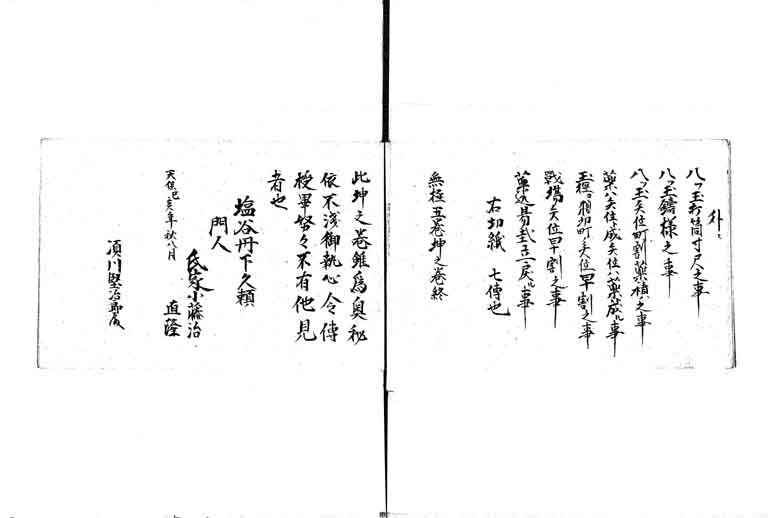 外ニ
八ツ玉打筒寸尺之事
八ツ玉鋳様之事
八ツ玉矢位町割薬積之事
薬八矢位成矢位八薬成ル事
玉極羽卯町手矢位早割之事
戦場矢位早割之事
薬込易
右切紙 七傳也
無極丑巻坤之巻終
此坤之巻雖爲奥秘
依不浅御執心令傳
授畢努々不有他見
者也
塩谷丹下久頼
門人
氏家小藤治
直隆
天保 亥年秋八月
須川堅治郎殿